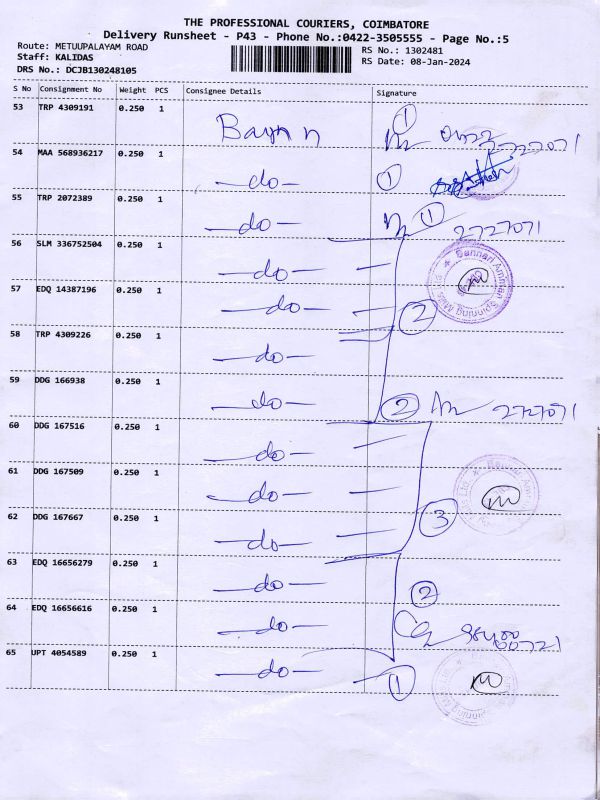 THE PROFESSIONAL COURIERS, COIMBATORE
Delivery Runsheet - P43 - Phone No.:0422-3505555 - Page No.:5
Route: METUUPALAYAM ROAD
Staff: KALIDAS
DRS No.: DCJB130248105
RS No.: 1302481
RS Date: 08-Jan-2024
S No Consignment No Weight PCS Consignee Details Signature
53 TRP 4309191 0.250 1 ① 2727071
54 MAA 568936217 0.250 1 —do— ①
55 TRP 2072389 0.250 1 —do— ① 2727071
56 SLM 336752504 0.250 1 —do— —
57 EDQ 14387196 0.250 1 —do— — ②
58 TRP 4309226 0.250 1 —do—
59 DDG 166938 0.250 1 —do— ② 2727071
60 DDG 167516 0.250 1 —do— —
61 DDG 167509 0.250 1 —do— —
62 DDG 167667 0.250 1 —do— — ③
63 EDQ 16656279 0.250 1 —do— ②
64 EDQ 16656616 0.250 1 —do—
65 UPT 4054589 0.250 1 —do— ①